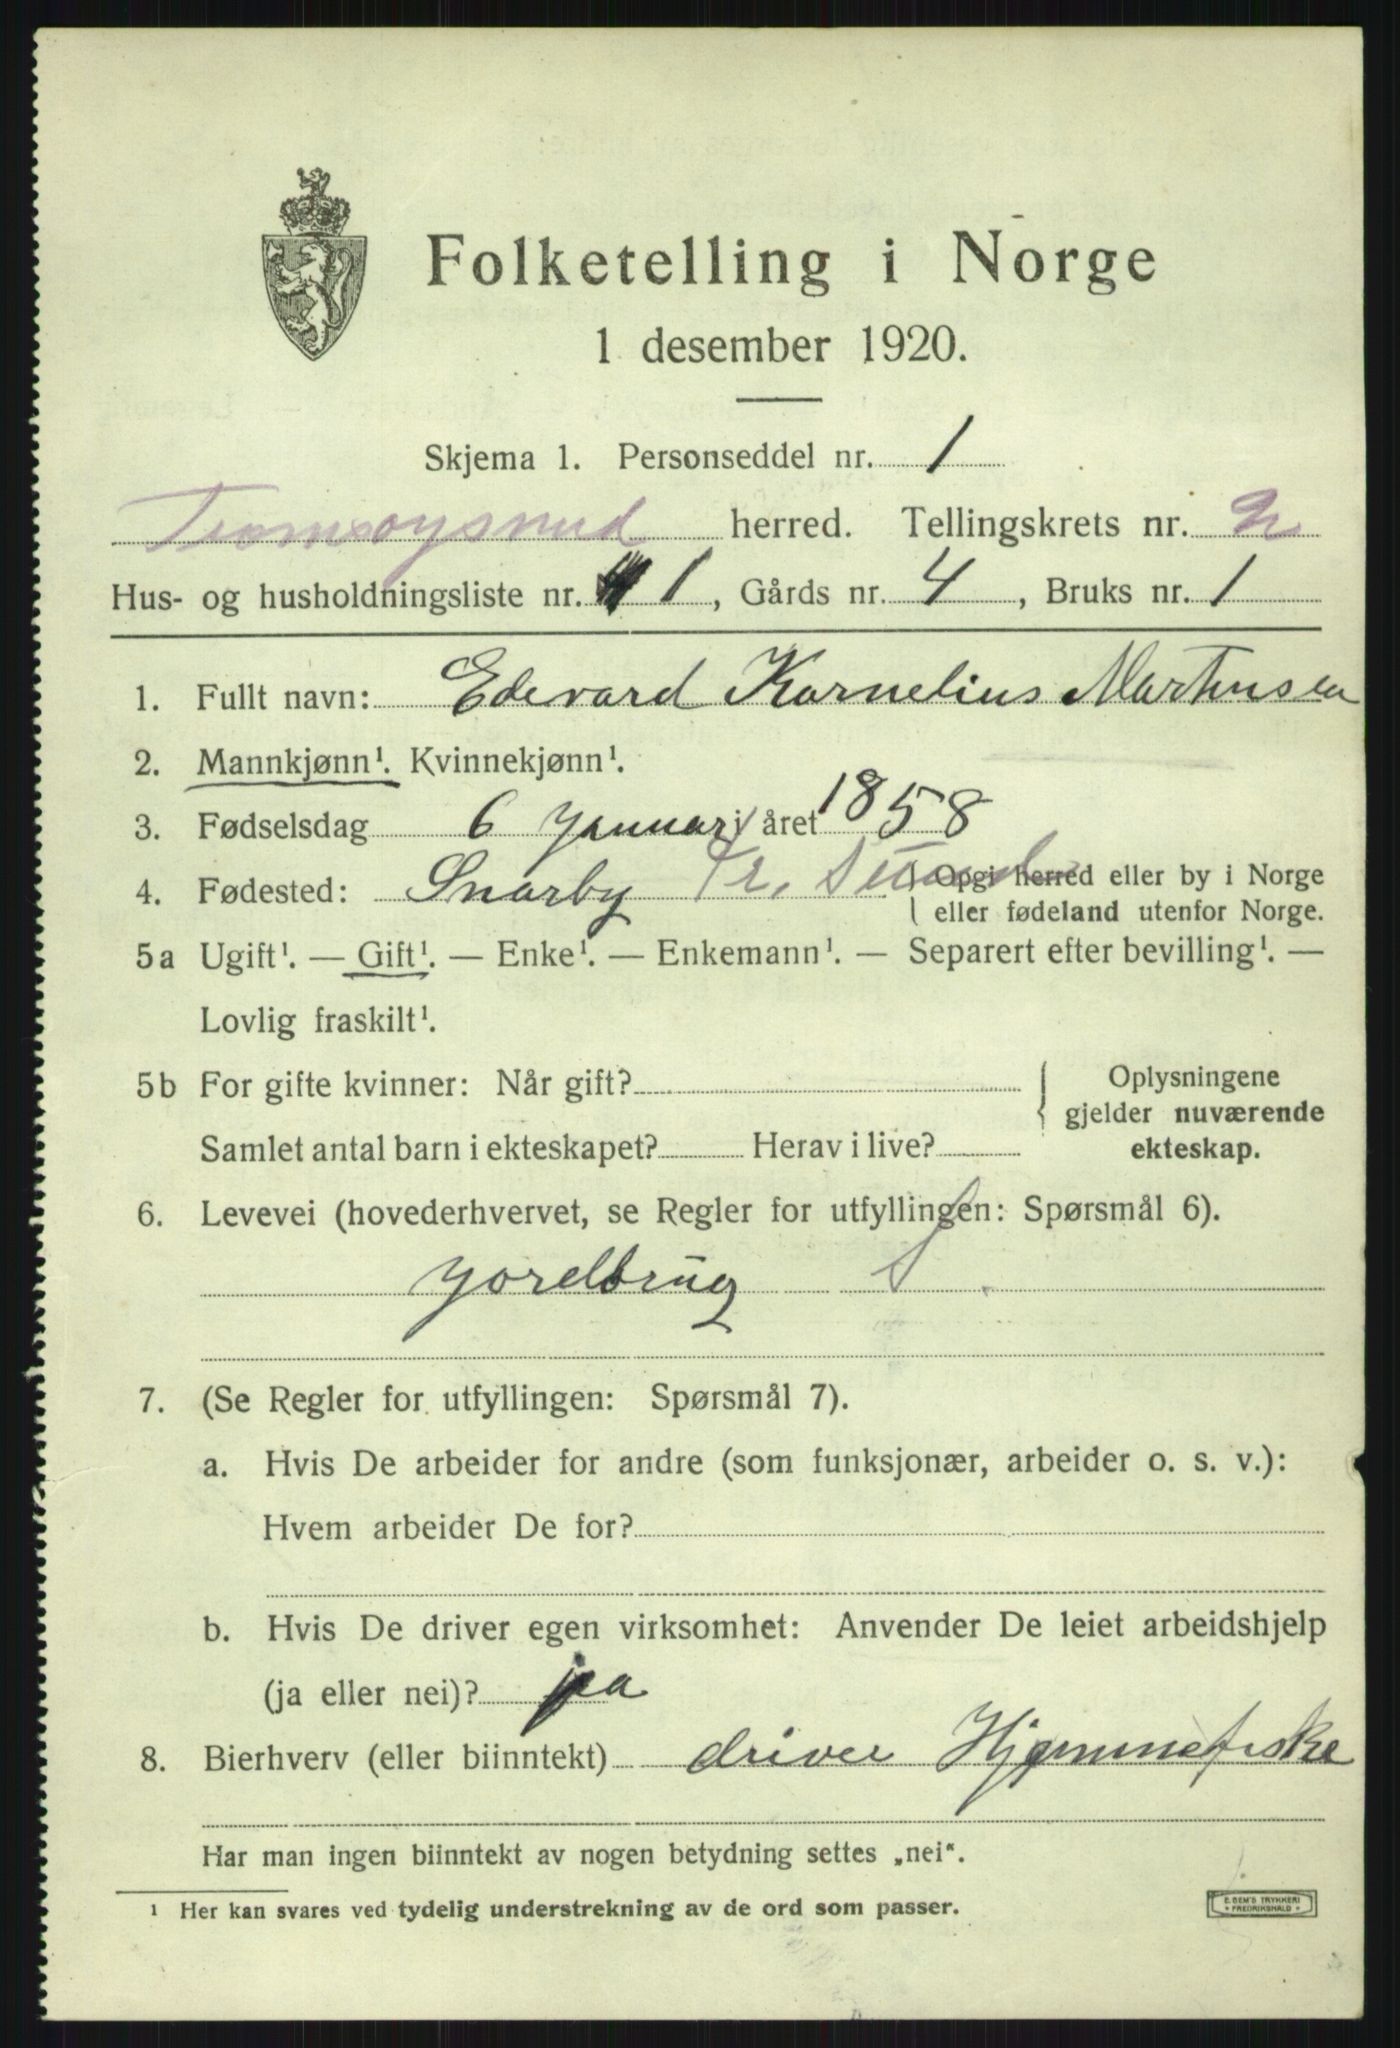 Folketelling i Norge
1 desember 1920.
Skjema 1. Personseddel nr. 1
Tromsøysund herred. Tellingskrets nr. 2
Hus- og husholdningsliste nr. 1, Gårds nr. 4, Bruks nr. 1
1. Fullt navn: Edevard Kornelius Martinsen
2. Mannkjønn¹. Kvinnekjønn¹.
3. Fødselsdag 6 Januar i året 1858
4. Fødested: Snarby Tr. Sund { Opgi herred eller by i Norge
eller fødeland utenfor Norge.
5a Ugift¹. — Gift¹. — Enke¹. — Enkemann¹. — Separert efter bevilling¹. —
Lovlig fraskilt¹.
5b For gifte kvinner: Når gift? { Oplysningene
gjelder nuværende
Samlet antal barn i ekteskapet? Herav i live? ekteskap.
6. Levevei (hovederhvervet, se Regler for utfyllingen: Spørsmål 6).
Jordbrug S
7. (Se Regler for utfyllingen: Spørsmål 7).
a. Hvis De arbeider for andre (som funksjonær, arbeider o. s. v.):
Hvem arbeider De for?
b. Hvis De driver egen virksomhet: Anvender De leiet arbeidshjelp
(ja eller nei)? ja
8. Bierhverv (eller biinntekt) driver Hjemmefiske
Har man ingen biinntekt av nogen betydning settes „nei“.
¹ Her kan svares ved tydelig understrekning av de ord som passer.
E. SEM'S TRYKKERI
FREDRIKSHALD